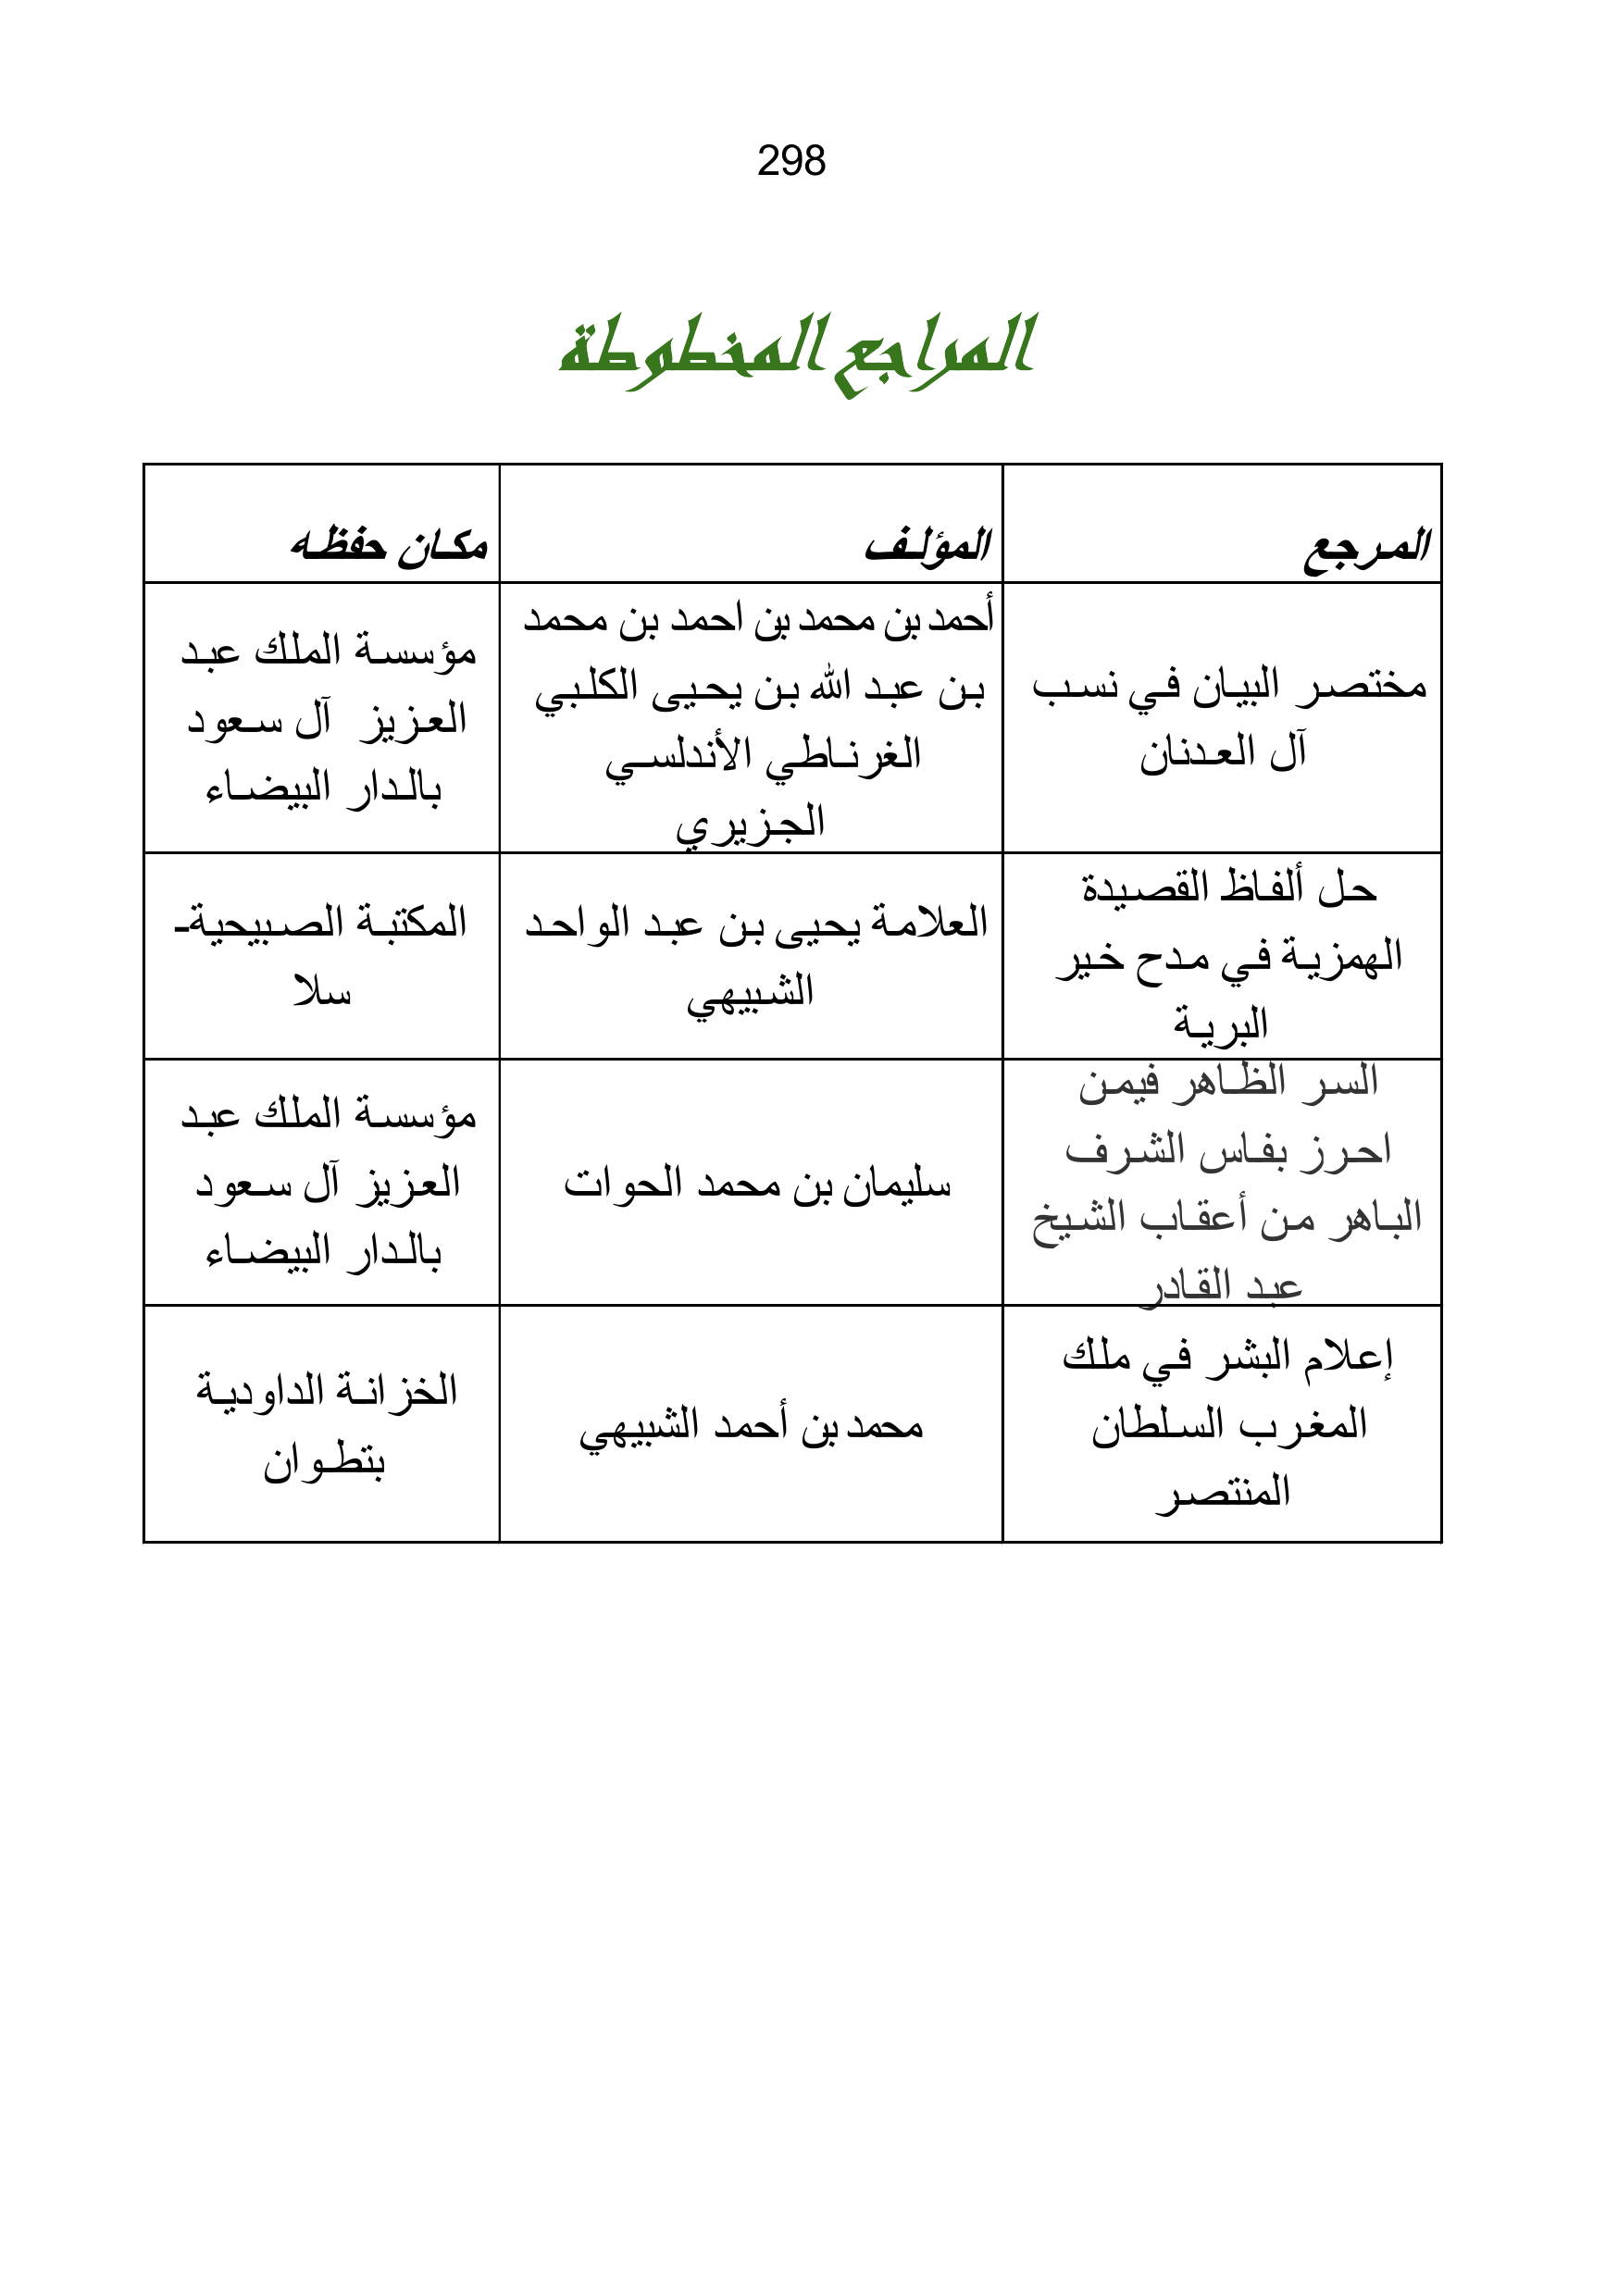 298
المراجع المخطوطة
المرجع
المؤلف
مكان حفظه
مختصر البيان في نسب
آل العدنان
أحمد بن محمد بن احمد بن محمد
بن عبد الله بن يحيى الكلبي
الغرناطي الأندلسي
الجزيري
مؤسسة الملك عبد
العزيز آل سعود
بالدار البيضاء
حل ألفاظ القصيدة
الهمزية في مدح خير
البرية
العلامة يحيى بن عبد الواحد
الشبيهي
المكتبة الصبيحية-
سلا
السر الظاهر فيمن
احرز بفاس الشرف
الباهر من أعقاب الشيخ
عبد القادر
سليمان بن محمد الحوات
مؤسسة الملك عبد
العزيز آل سعود
بالدار البيضاء
إعلام البشر في ملك
المغرب السلطان
المنتصر
محمد بن أحمد الشبيهي
الخزانة الداودية
بتطوان